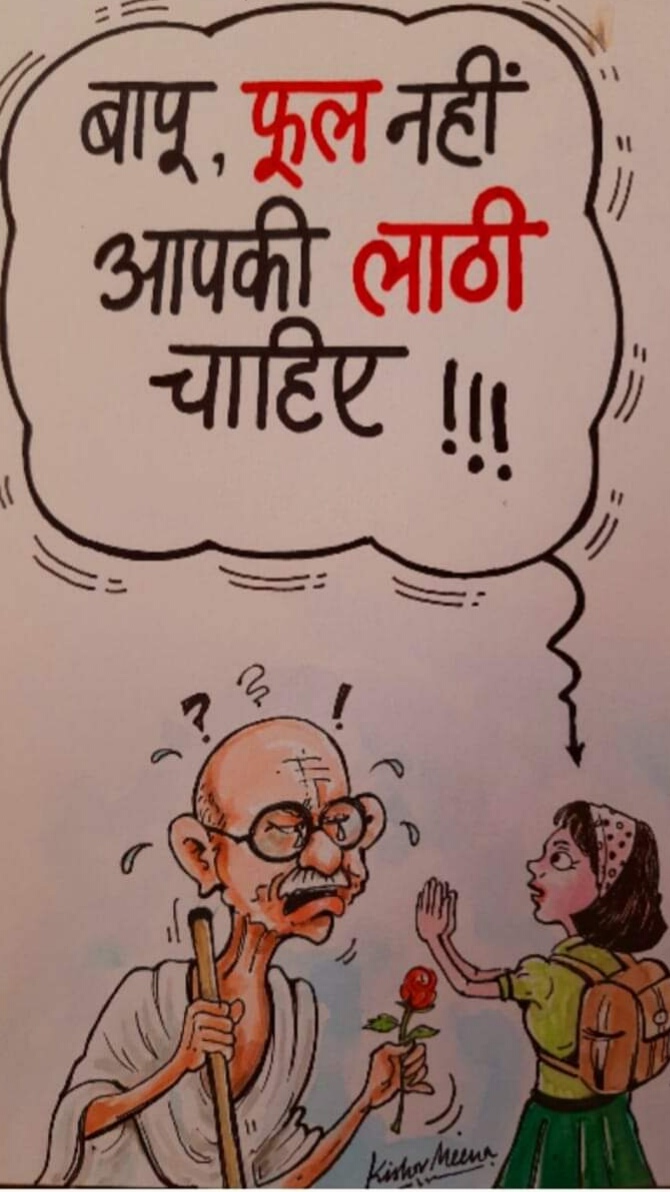 बापू, फूल नहीं
आपकी लाठी
चाहिए !!!
? ? !
Kishor Meena